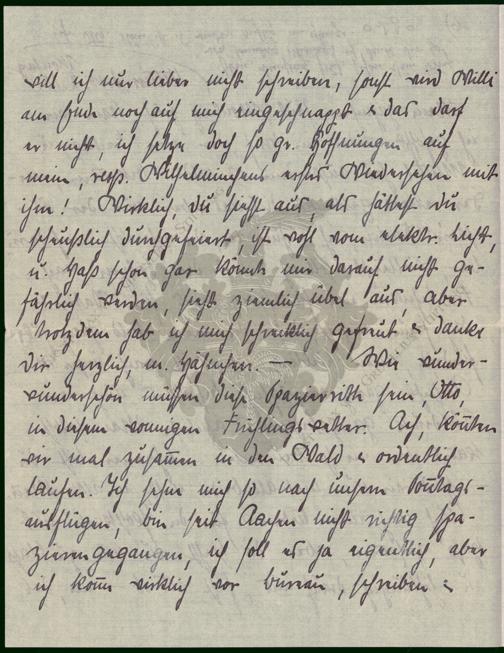 will ich nur lieber nicht schreiben, sonst wird Willi
am Ende noch auf mich eingeschnappt & das darf
er nicht, ich setze doch so gr. Hoffnungen auf
mein, resp. Wilhelminchens erstes Wiedersehen mit
ihm! Wirklich, du siehst aus, als hättest du
scheußlich durchgefeiert, ist wohl vom elektr. Licht,
u. Haß schon gar könnte mir darauf nicht ge-
fährlich werden, sieht ziemlich übel aus, aber
trotzdem hab ich mich schrecklich gefreut & danke
dir herzlich, m. Hähnchen. — Wie wunder-
wunderschön müssen diese Spazierritte sein, Otto,
in diesem wonnigen Frühlingswetter. Ach, könnten
wir mal zusammen in den Wald & ordentlich
laufen. Ich sehne mich so nach unsern Sonntags-
ausflügen, bin seit Aachen nicht richtig spa-
zierengegangen, ich soll es ja eigentlich, aber
ich komm wirklich vor bureau, schreiben &